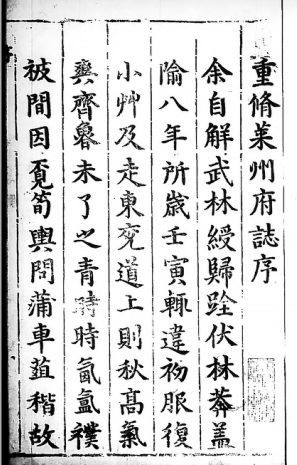 重脩萊州府誌序
余自解武林綬歸跧伏林莽蓋
隃八年所歲壬寅輙違初服復
小艸及走東兖道上則秋高氣
爽齊魯未了之青時時氤氳襆
被間因覔筍輿問蒲車葅稭故